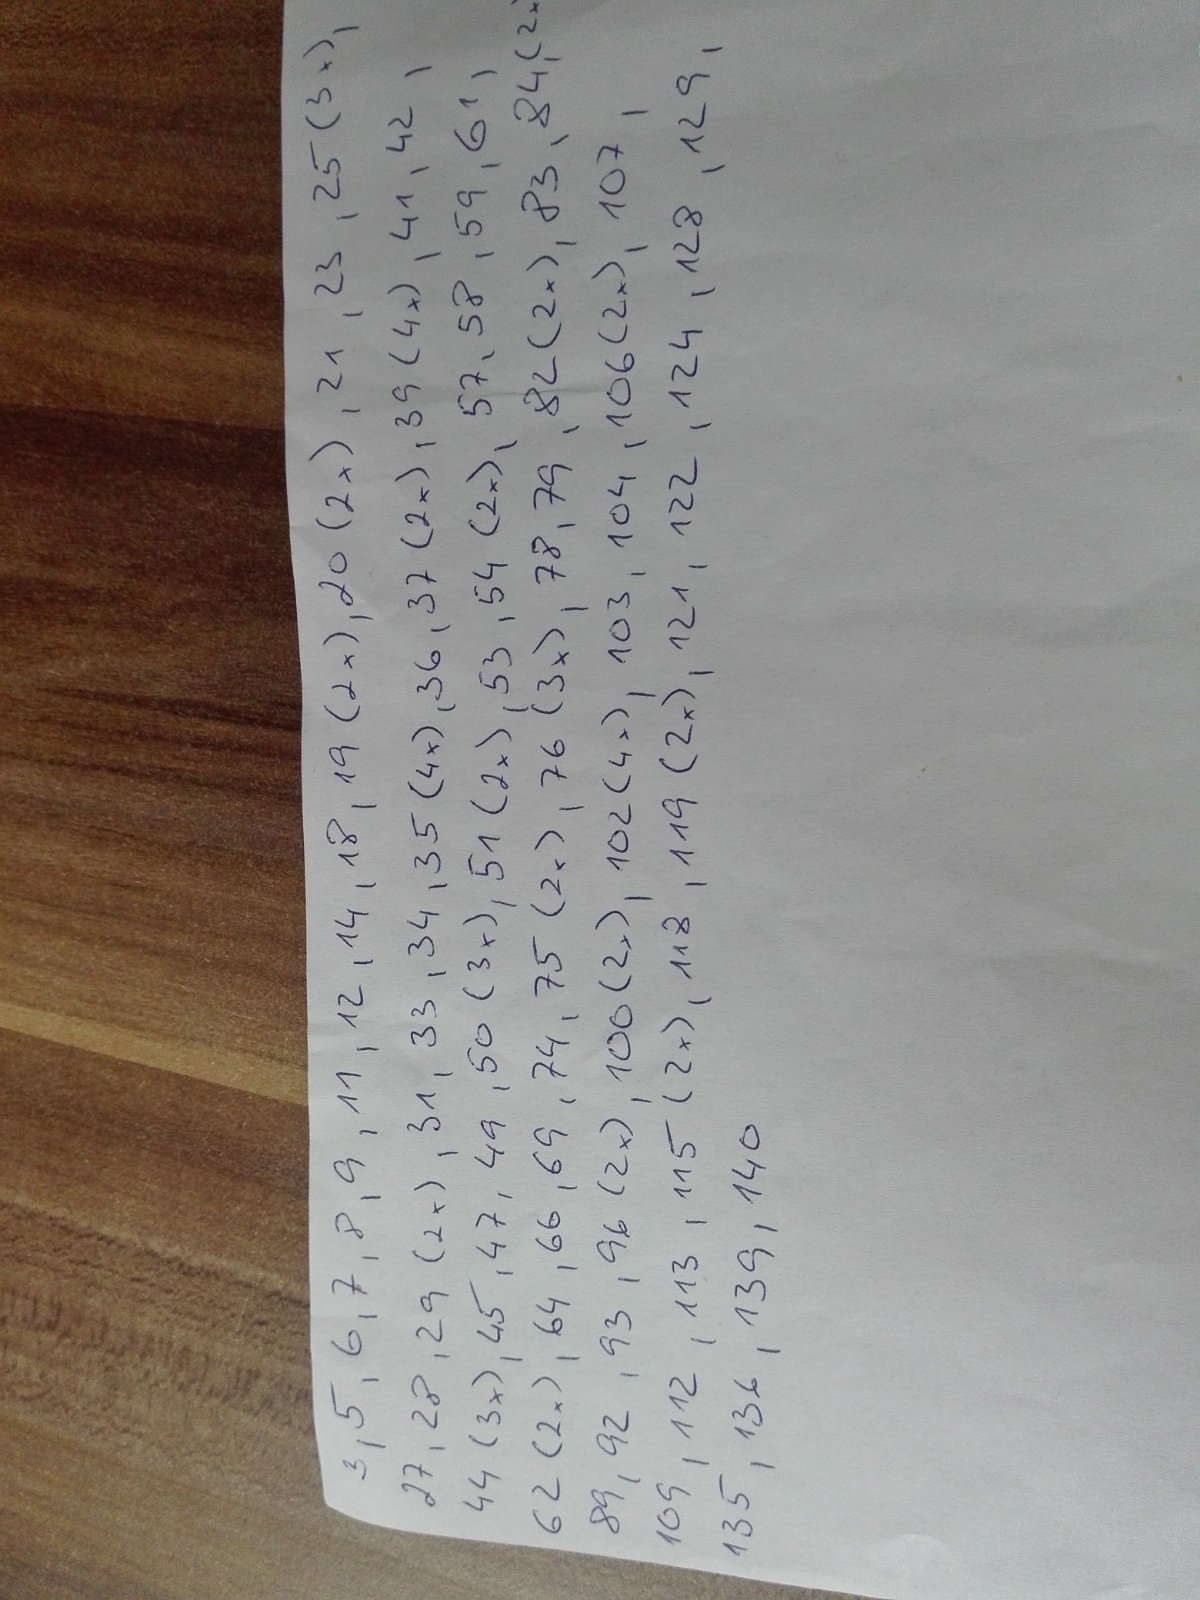 3, 5, 6, 7, 8, 9, 11, 12, 14, 18, 19 (2x), 20 (2x), 21, 23, 25 (3x),
27, 28, 29 (2x), 31, 33, 34, 35 (4x), 36, 37 (2x), 39 (4x), 41, 42,
44 (3x), 45, 47, 49, 50 (3x), 51 (2x), 53, 54 (2x), 57, 58, 59, 61,
62 (2x), 64, 66, 69, 74, 75 (2x), 76 (3x), 78, 79, 82 (2x), 83, 84 (2x
89, 92, 93, 96 (2x), 100 (2x), 102 (4x), 103, 104, 106 (2x), 107,
109, 112, 113, 115 (2x), 118, 119 (2x), 121, 122, 124, 128, 129,
135, 136, 139, 140